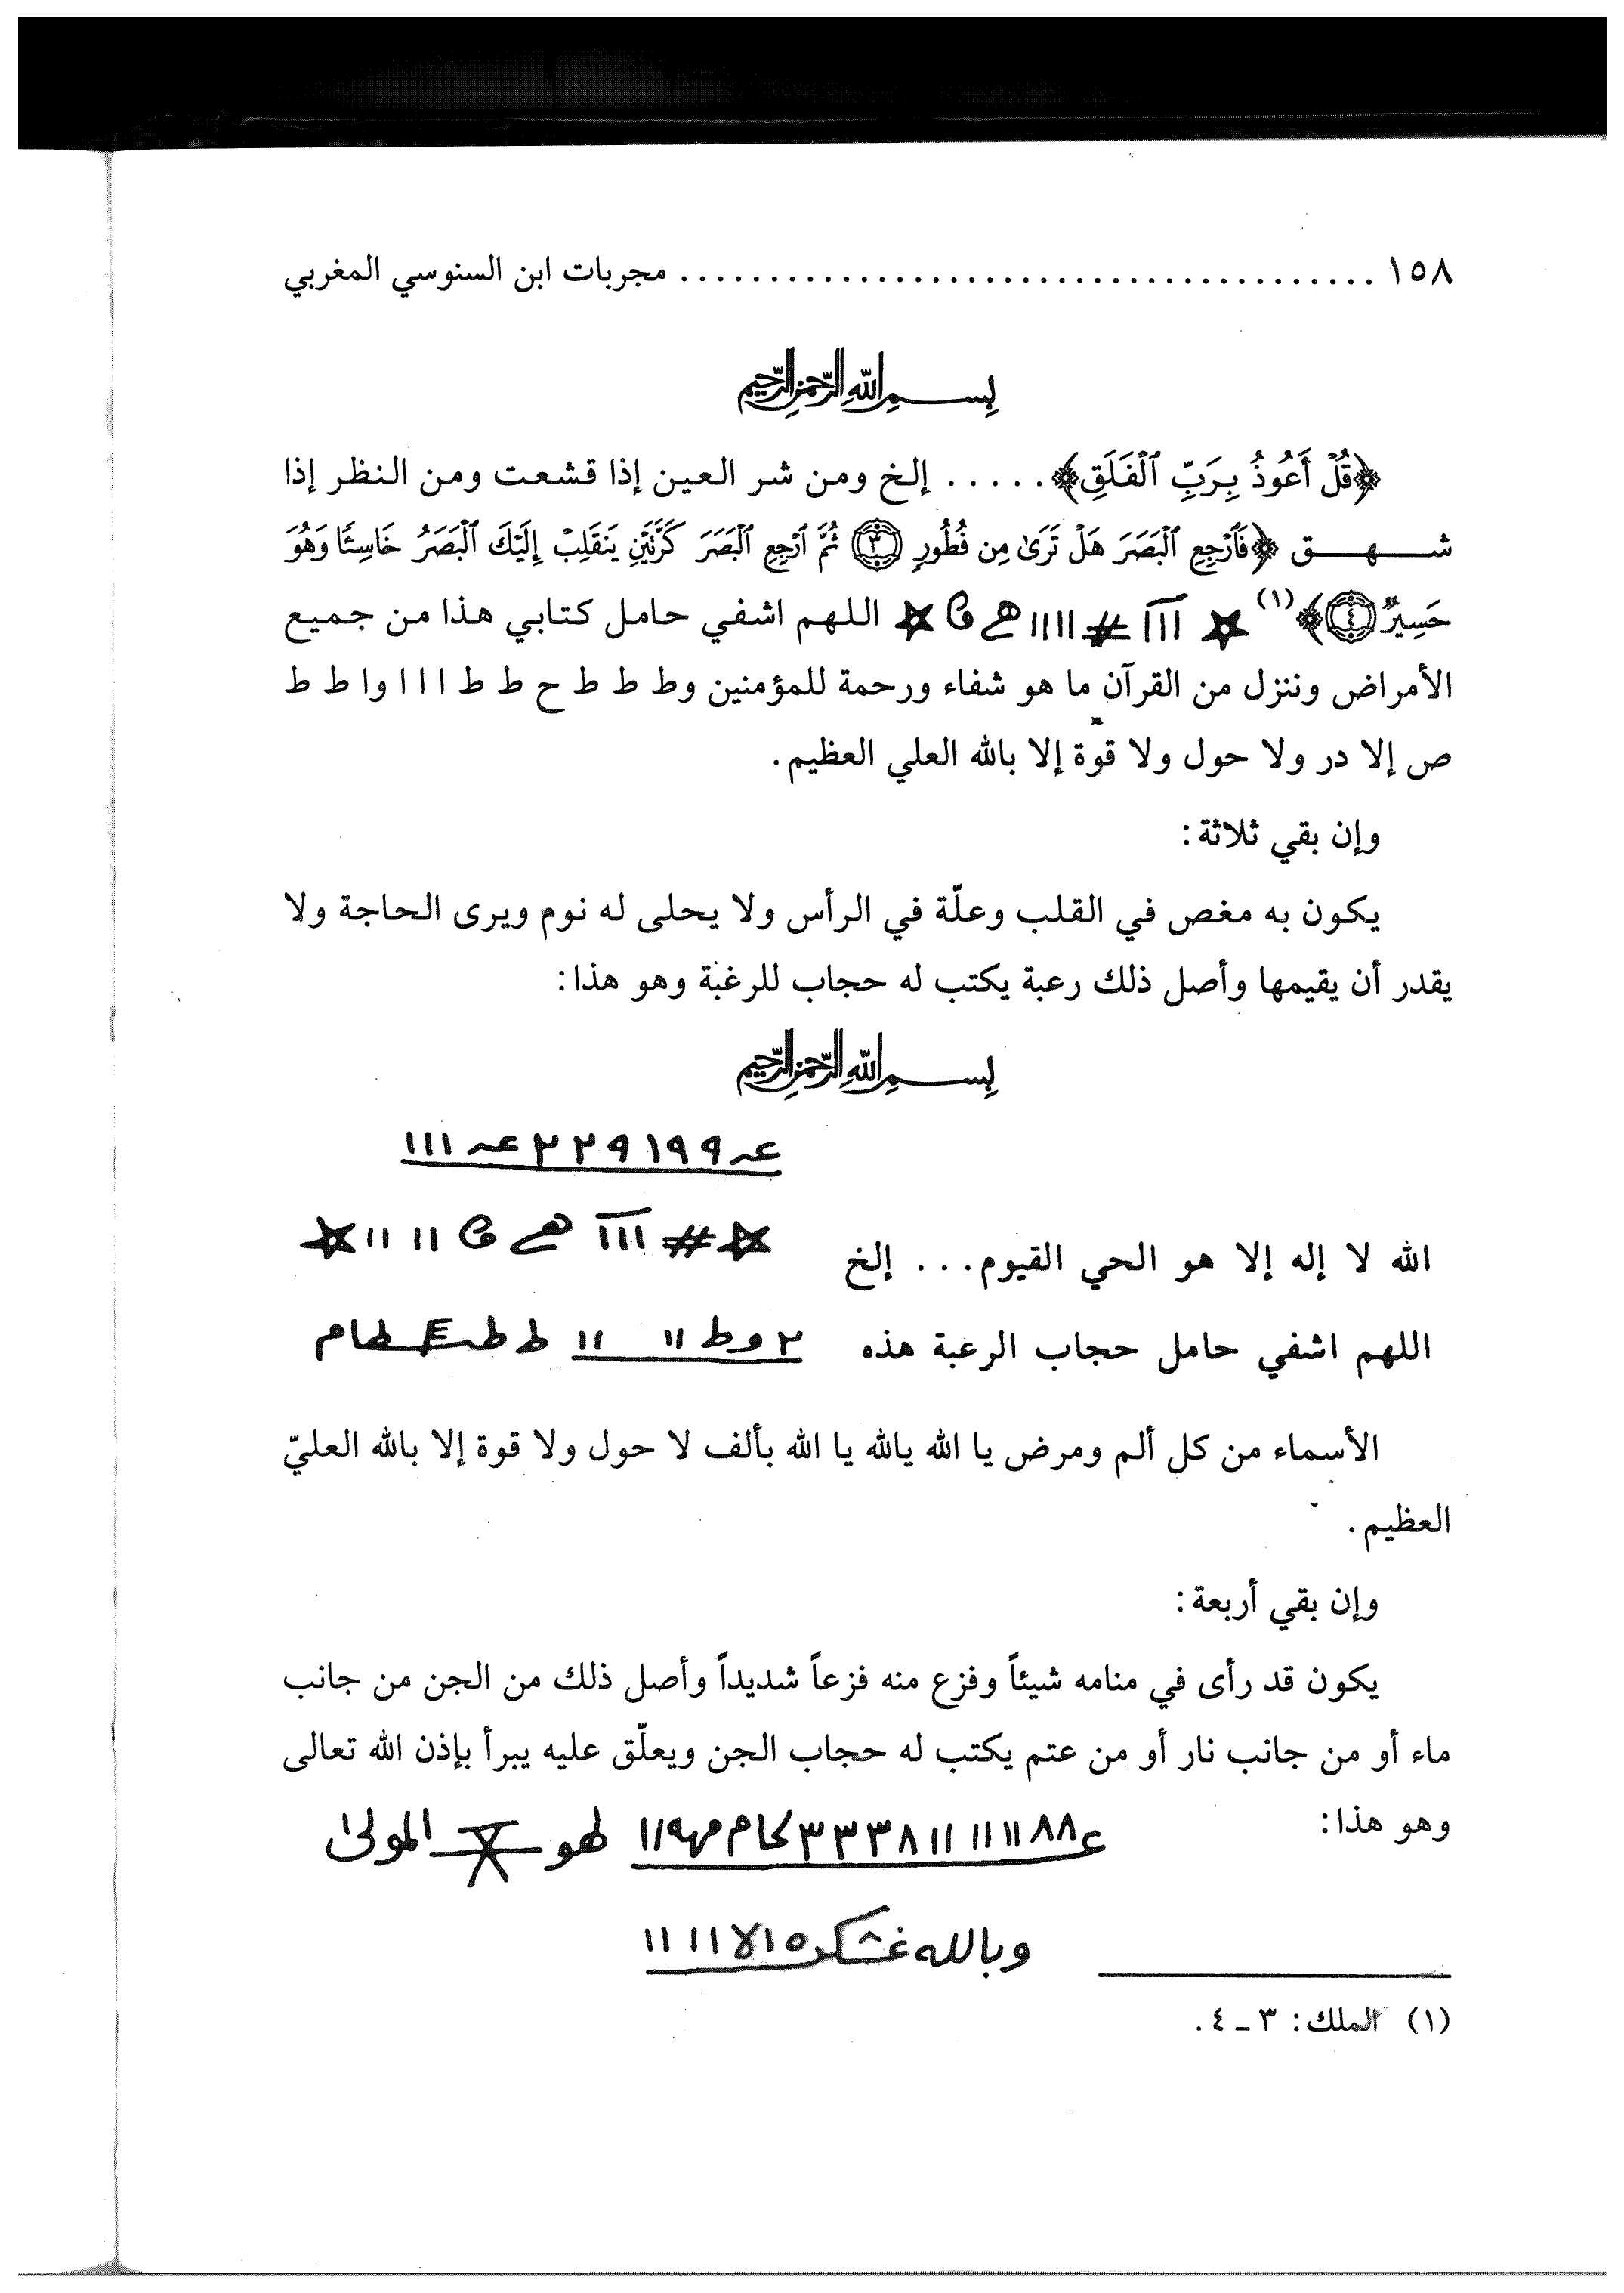 ١٥٨ ........................................ مجربات ابن السنوسي المغربي
بسم الله الرحمن الرحيم
﴿قُلْ أَعُوذُ بِرَبِّ ٱلْفَلَقِ﴾..... إلخ ومن شر العين إذا قشعت ومن النظر إذا
شهق ﴿فَٱرْجِعِ ٱلْبَصَرَ هَلْ تَرَىٰ مِن فُطُورٍ ٣ ثُمَّ ٱرْجِعِ ٱلْبَصَرَ كَرَّتَيْنِ يَنقَلِبْ إِلَيْكَ ٱلْبَصَرُ خَاسِئًا وَهُوَ
حَسِيرٌ ٤﴾(١) اللهم اشفي حامل كتابي هذا من جميع
الأمراض وننزل من القرآن ما هو شفاء ورحمة للمؤمنين وط ط ط ح ط ط ا ا ا وا ط ط
ص إلا در ولا حول ولا قوة إلا بالله العلي العظيم.
وإن بقي ثلاثة:
يكون به مغص في القلب وعلّة في الرأس ولا يحلى له نوم ويرى الحاجة ولا
يقدر أن يقيمها وأصل ذلك رعبة يكتب له حجاب للرغبة وهو هذا:
بسم الله الرحمن الرحيم
الله لا إله إلا هو الحي القيوم... إلخ
اللهم اشفي حامل حجاب الرعبة هذه ٢ وط ١١ ١١ ط
الأسماء من كل ألم ومرض يا الله يالله يا الله بألف لا حول ولا قوة إلا بالله العليّ
العظيم.
وإن بقي أربعة:
يكون قد رأى في منامه شيئاً وفزع منه فزعاً شديداً وأصل ذلك من الجن من جانب
ماء أو من جانب نار أو من عتم يكتب له حجاب الجن ويعلّق عليه يبرأ بإذن الله تعالى
وهو هذا: ع ٨٨ ١١ ١١ ١١ ٨ ٣ ٣ ٣ لهو المولى
وبالله
(١) الملك: ٣ ـ ٤.